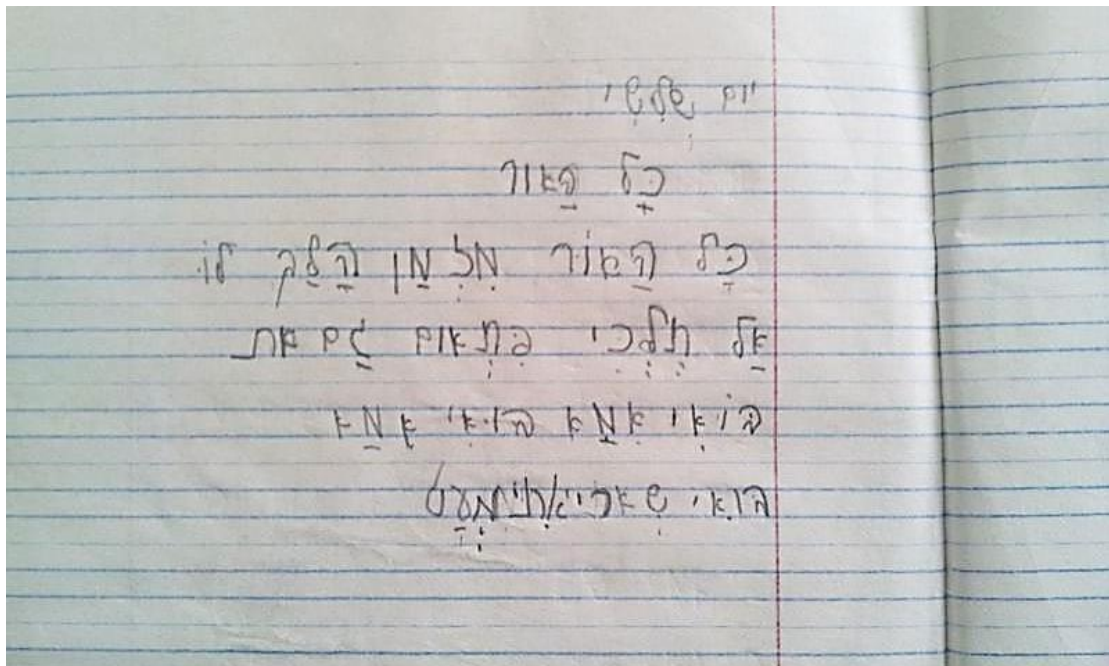 יום שלשי
כָּל הַאור
כַּל הַאוֹר מִזְמַן הַלַךְ לוֹ
אַל תֵלְכִי פִּתְאום גַם את
בּוֹאִי אִמַא בּוֹאִי אִמַא
בּוֹאי שְארי איתִי מְעַט